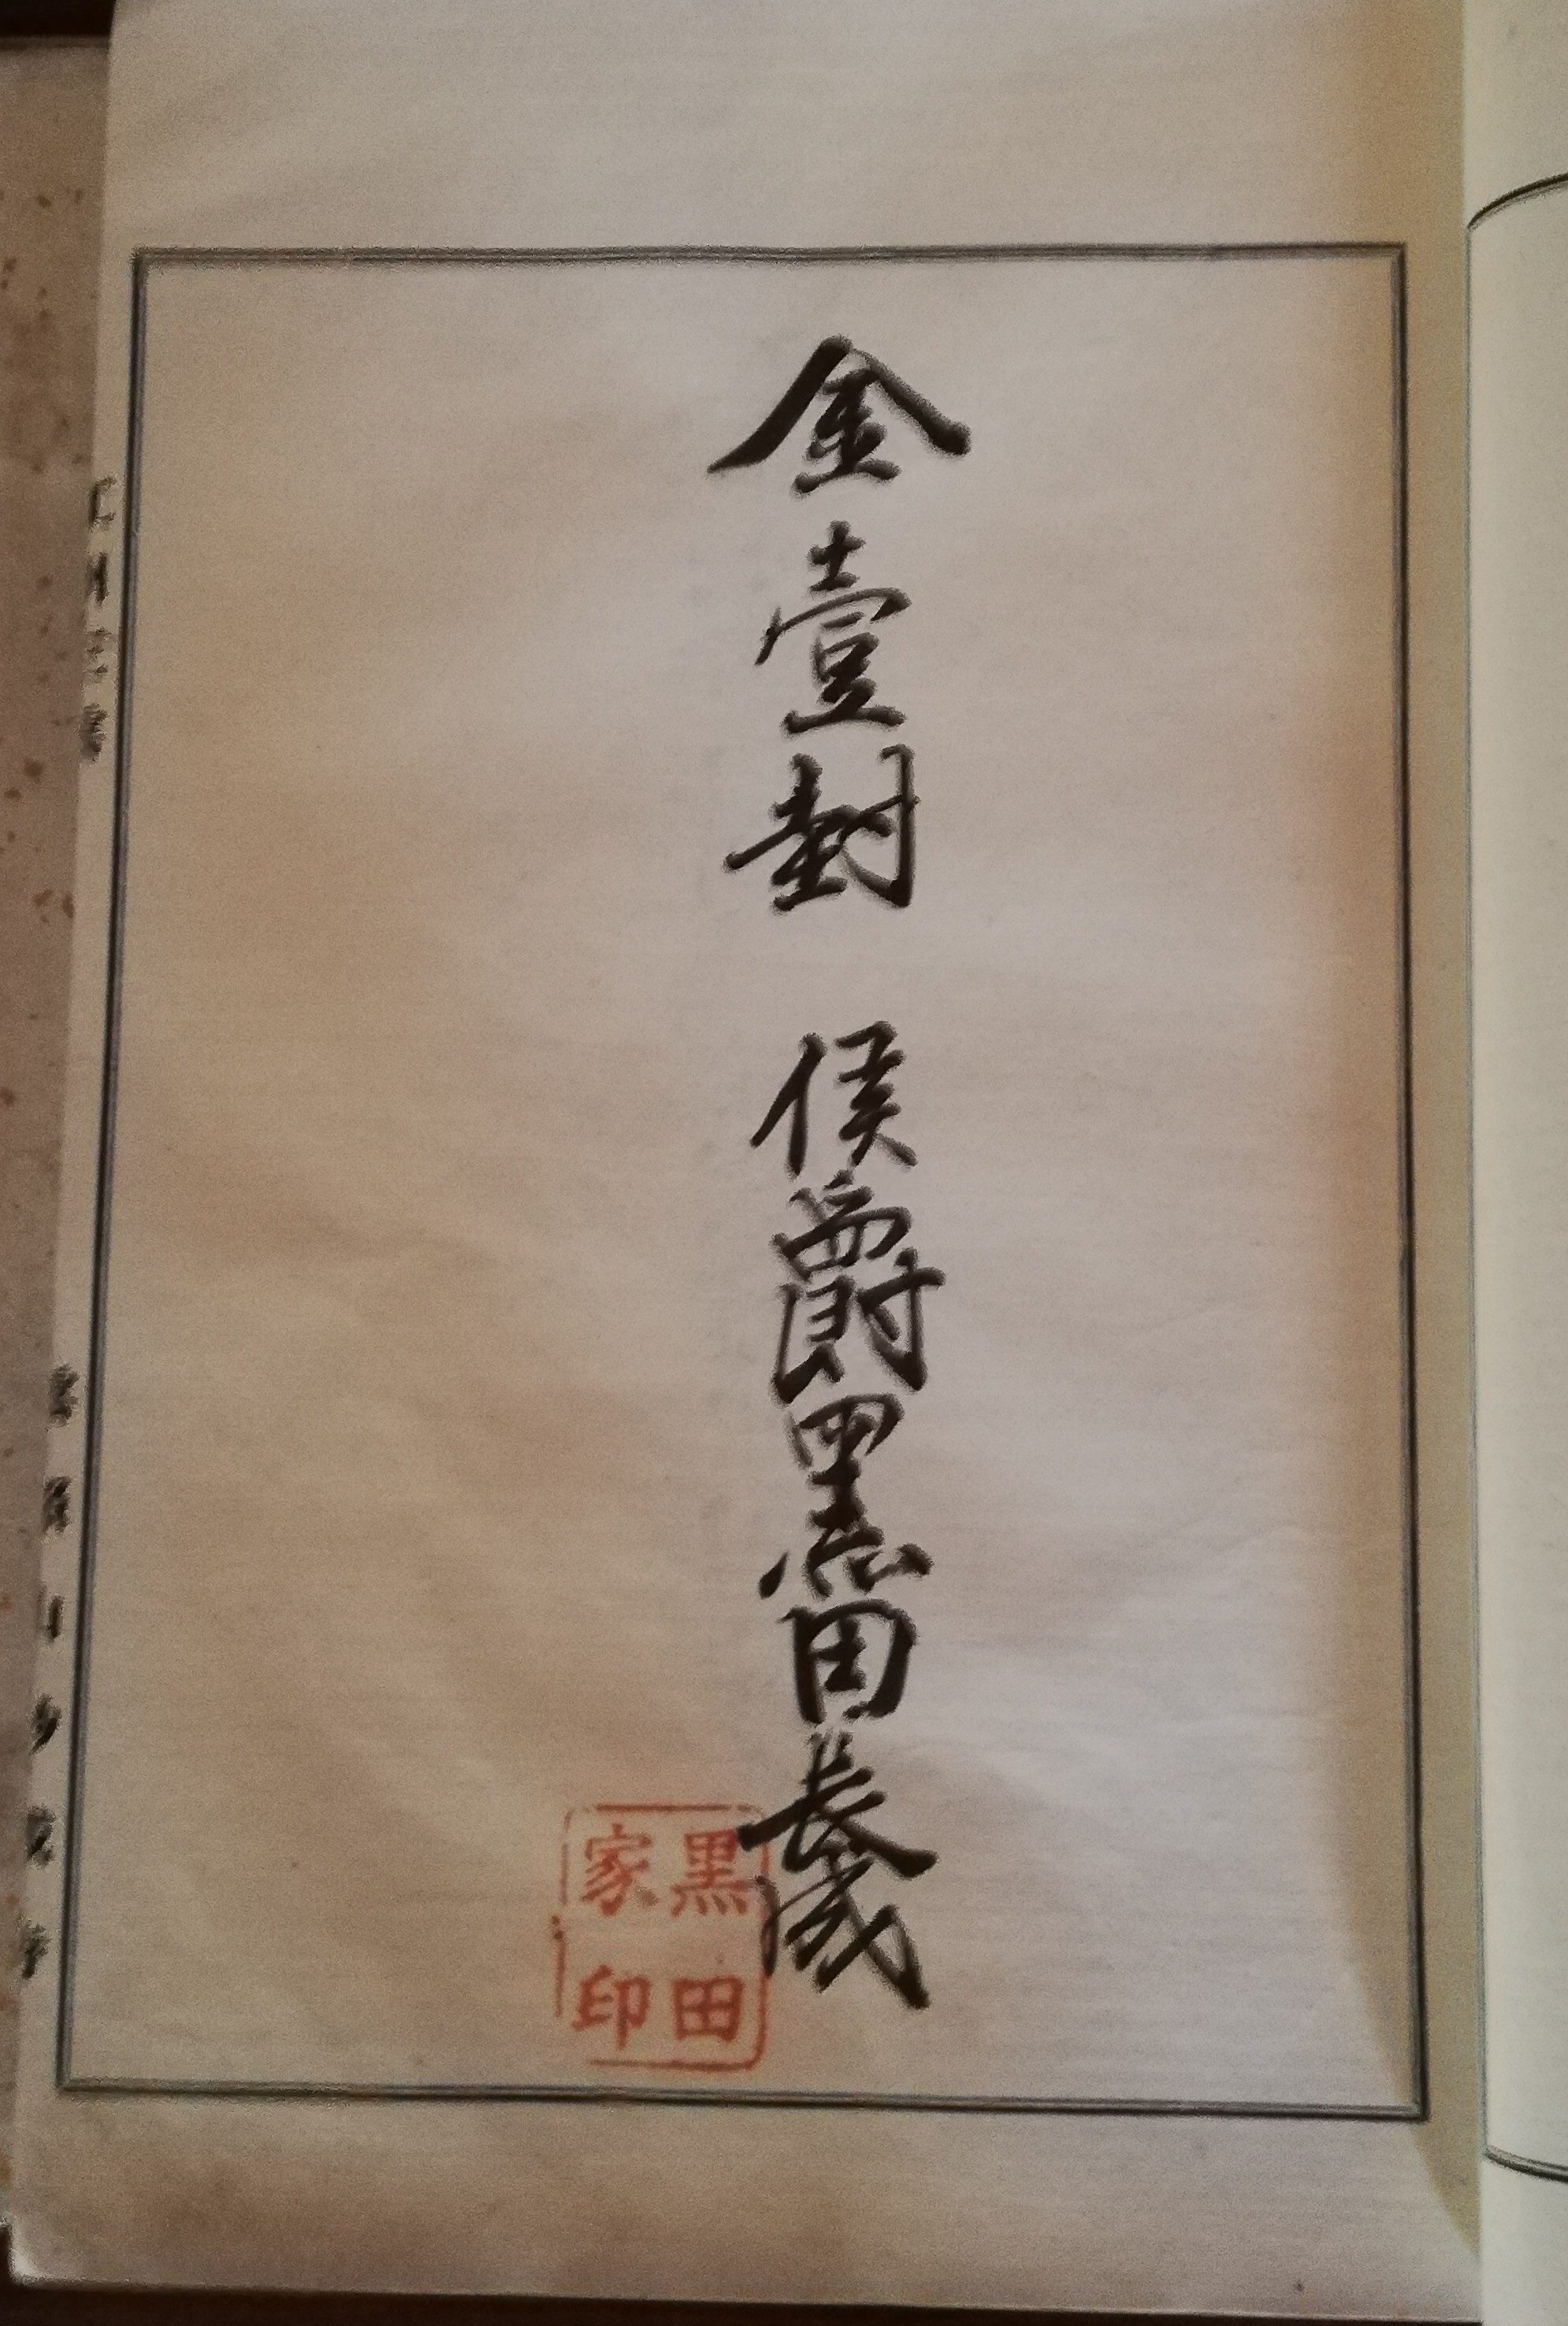 金壹封　侯爵黑田長成
黒田
家印